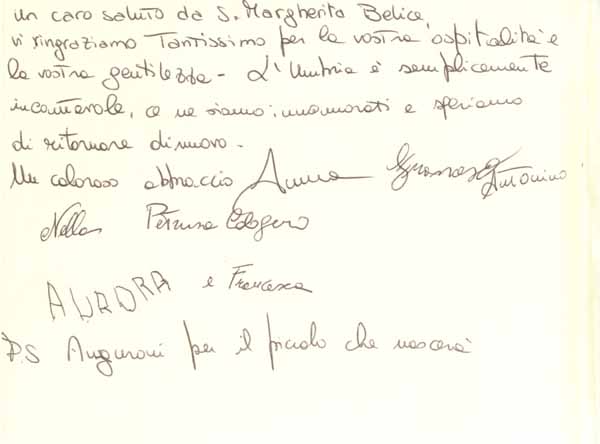 un caro saluto da S. Margherita Belice,
vi ringraziamo Tantissimo per la vostra ospitalità e
la vostra gentilezza - L'Umbria è semplicemente
incantevole, ce ne siamo innamorati e speriamo
di ritornare di nuovo.
Un caloroso abbraccio Anna
Antonino
Nella Petrusa Calogero
AURORA e Francesca
P.S Auguroni per il piccolo che nascerà